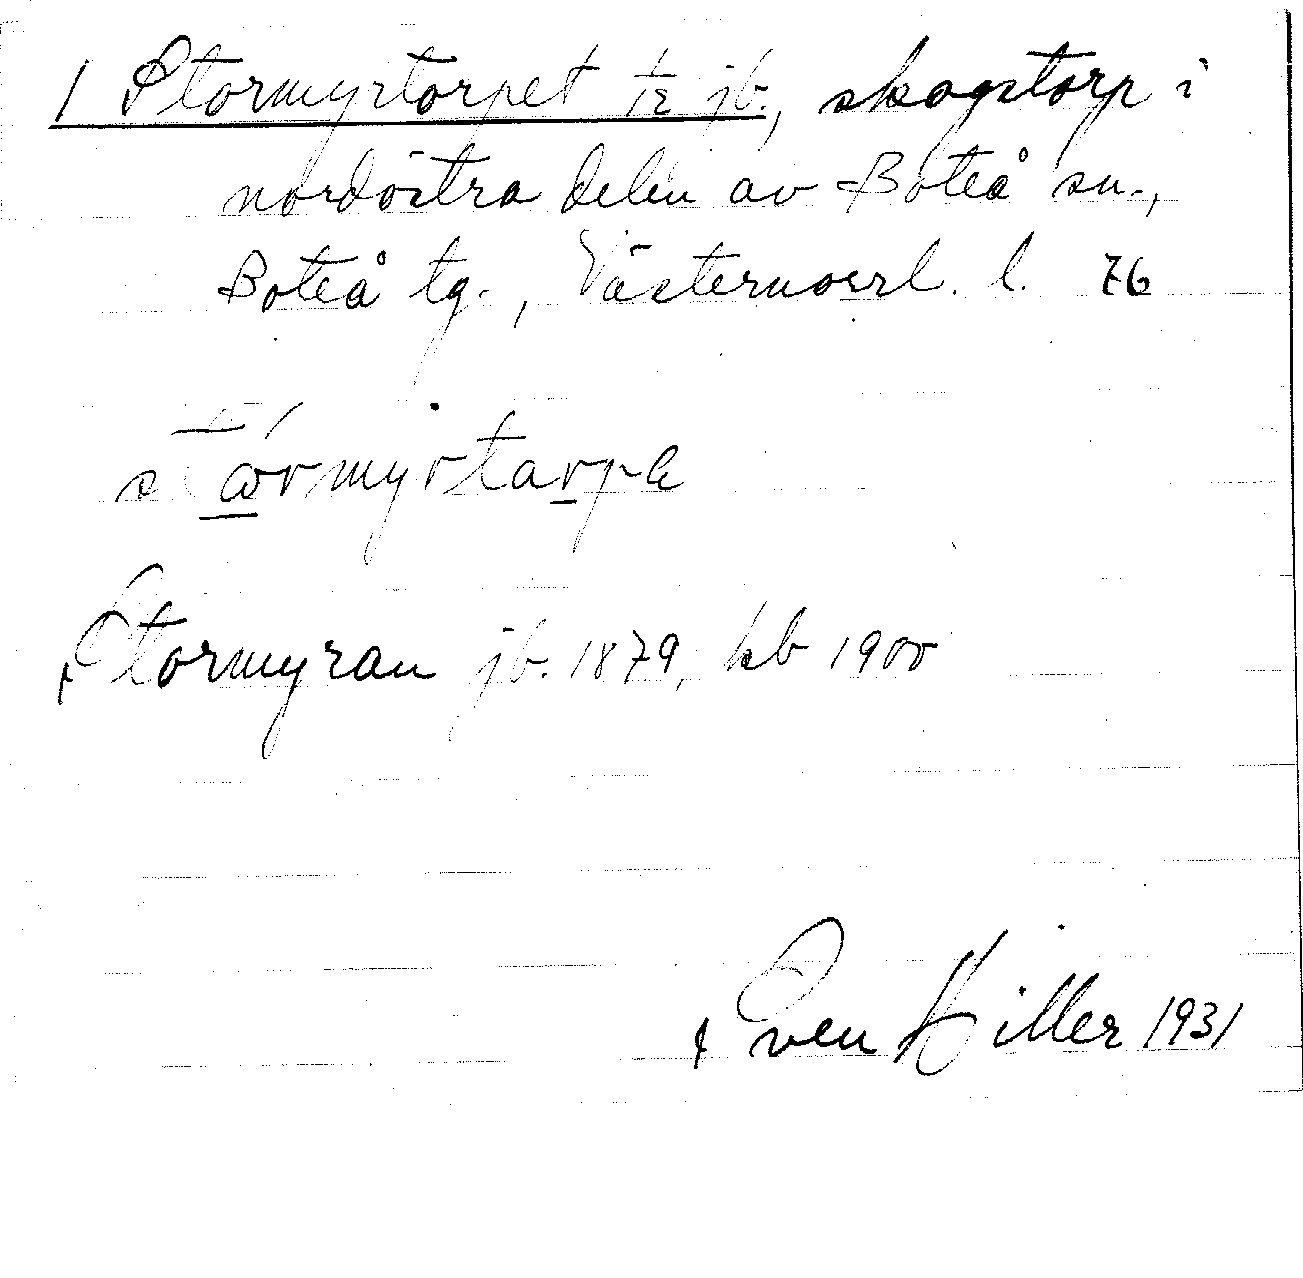 1 Stormyrtorpet te jb., skogstorp i
nordöstra delen av Boteå sn.,
Boteå tg., Västernorrl. l. 76
stωrmyrtarpe
Stormyran jb. 1879, kb 1900
Sven Hiller 1931